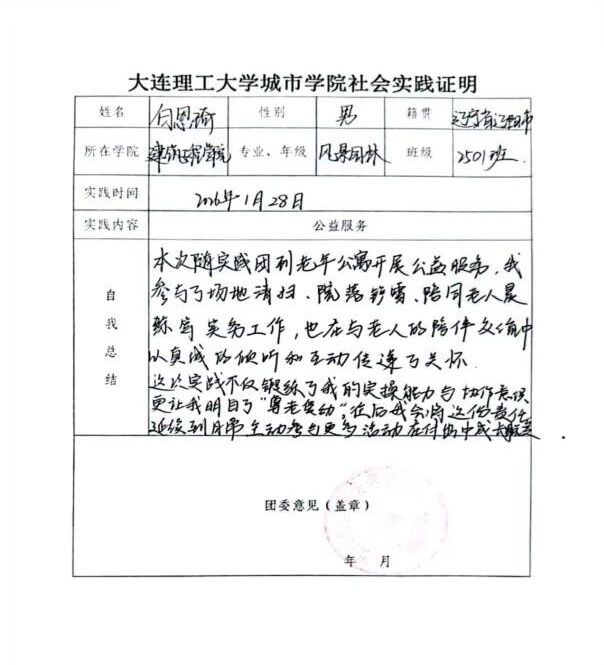 大连理工大学城市学院社会实践证明
姓名 白恩琦 性别 男 籍贯 辽宁省辽阳市
所在学院 建筑工程学院 专业、年级 风景园林 班级 2501班
实践时间 2026年1月28日
实践内容 公益服务
自我总结
本次随实践团到老年公寓开展公益服务,我
参与了场地清扫、院落铲雪、陪同老人晨
练等实务工作,也在与老人的陪伴交流中
以真诚的倾听和互动传递了关怀.
这次实践不仅锻练了我的实操能力与协作意识
更让我明白了"尊老爱幼",往后我会将这份责任
延续到日常主动参与更多活动在付出中成长
团委意见(盖章)
年 月